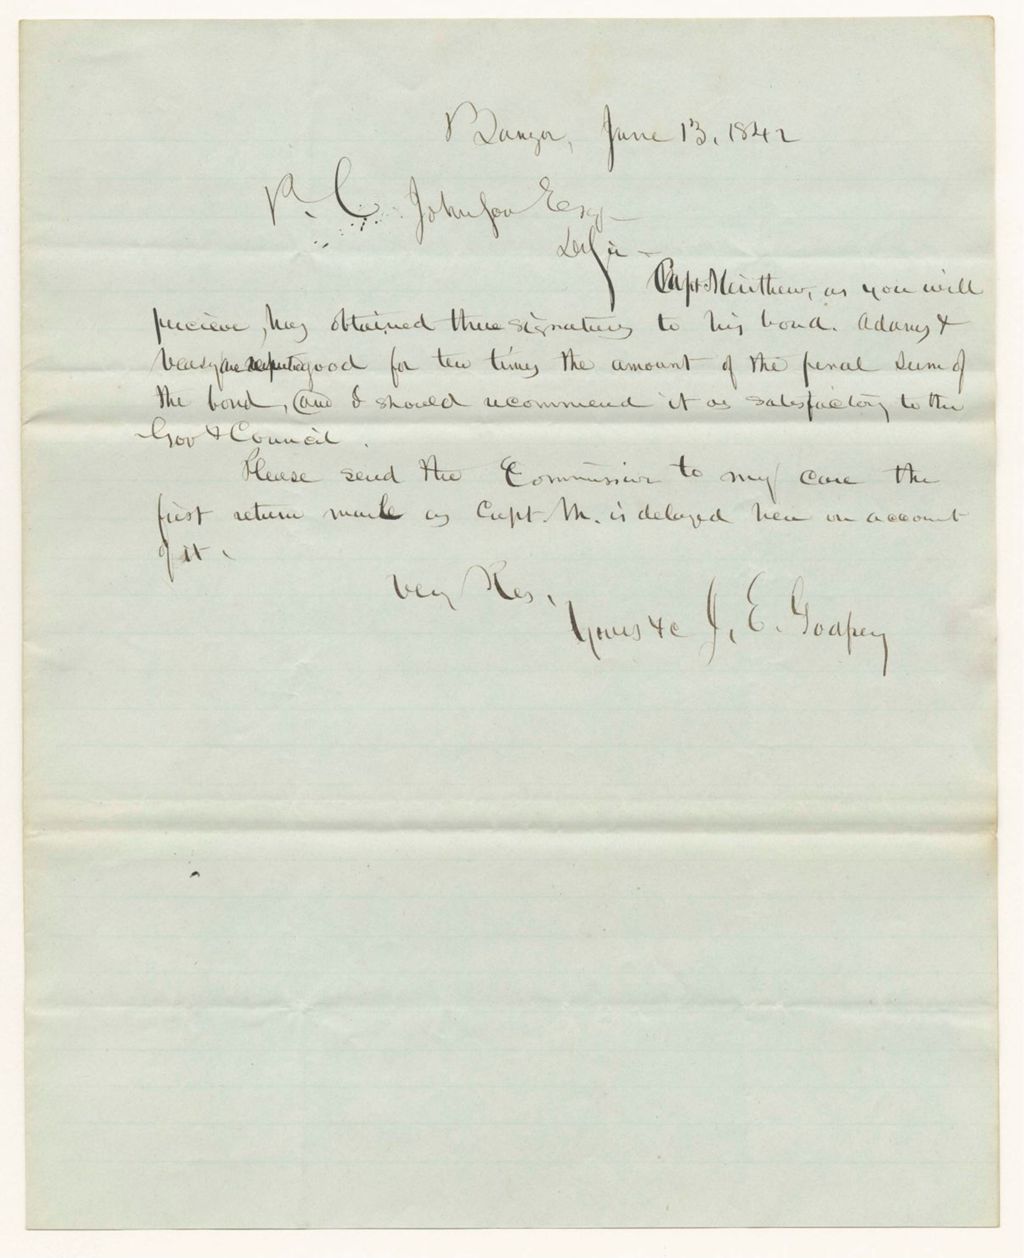 Bangor, June 13, 1842
P. C. Johnson Esq.
Dr Sir —
Capt. Matthews, as you will
percieve, has obtained three signatures to his bond. Adams &
Veasy are good for ten times the amount of the penal sum of
the bond, and I should recommend it as satisfactory to the
Gov & Council.
Please send the Commission to my care the
first return mail as Capt. M. is delayed here on account
of it.
Very Res.
Yours &c J. E. Godfrey